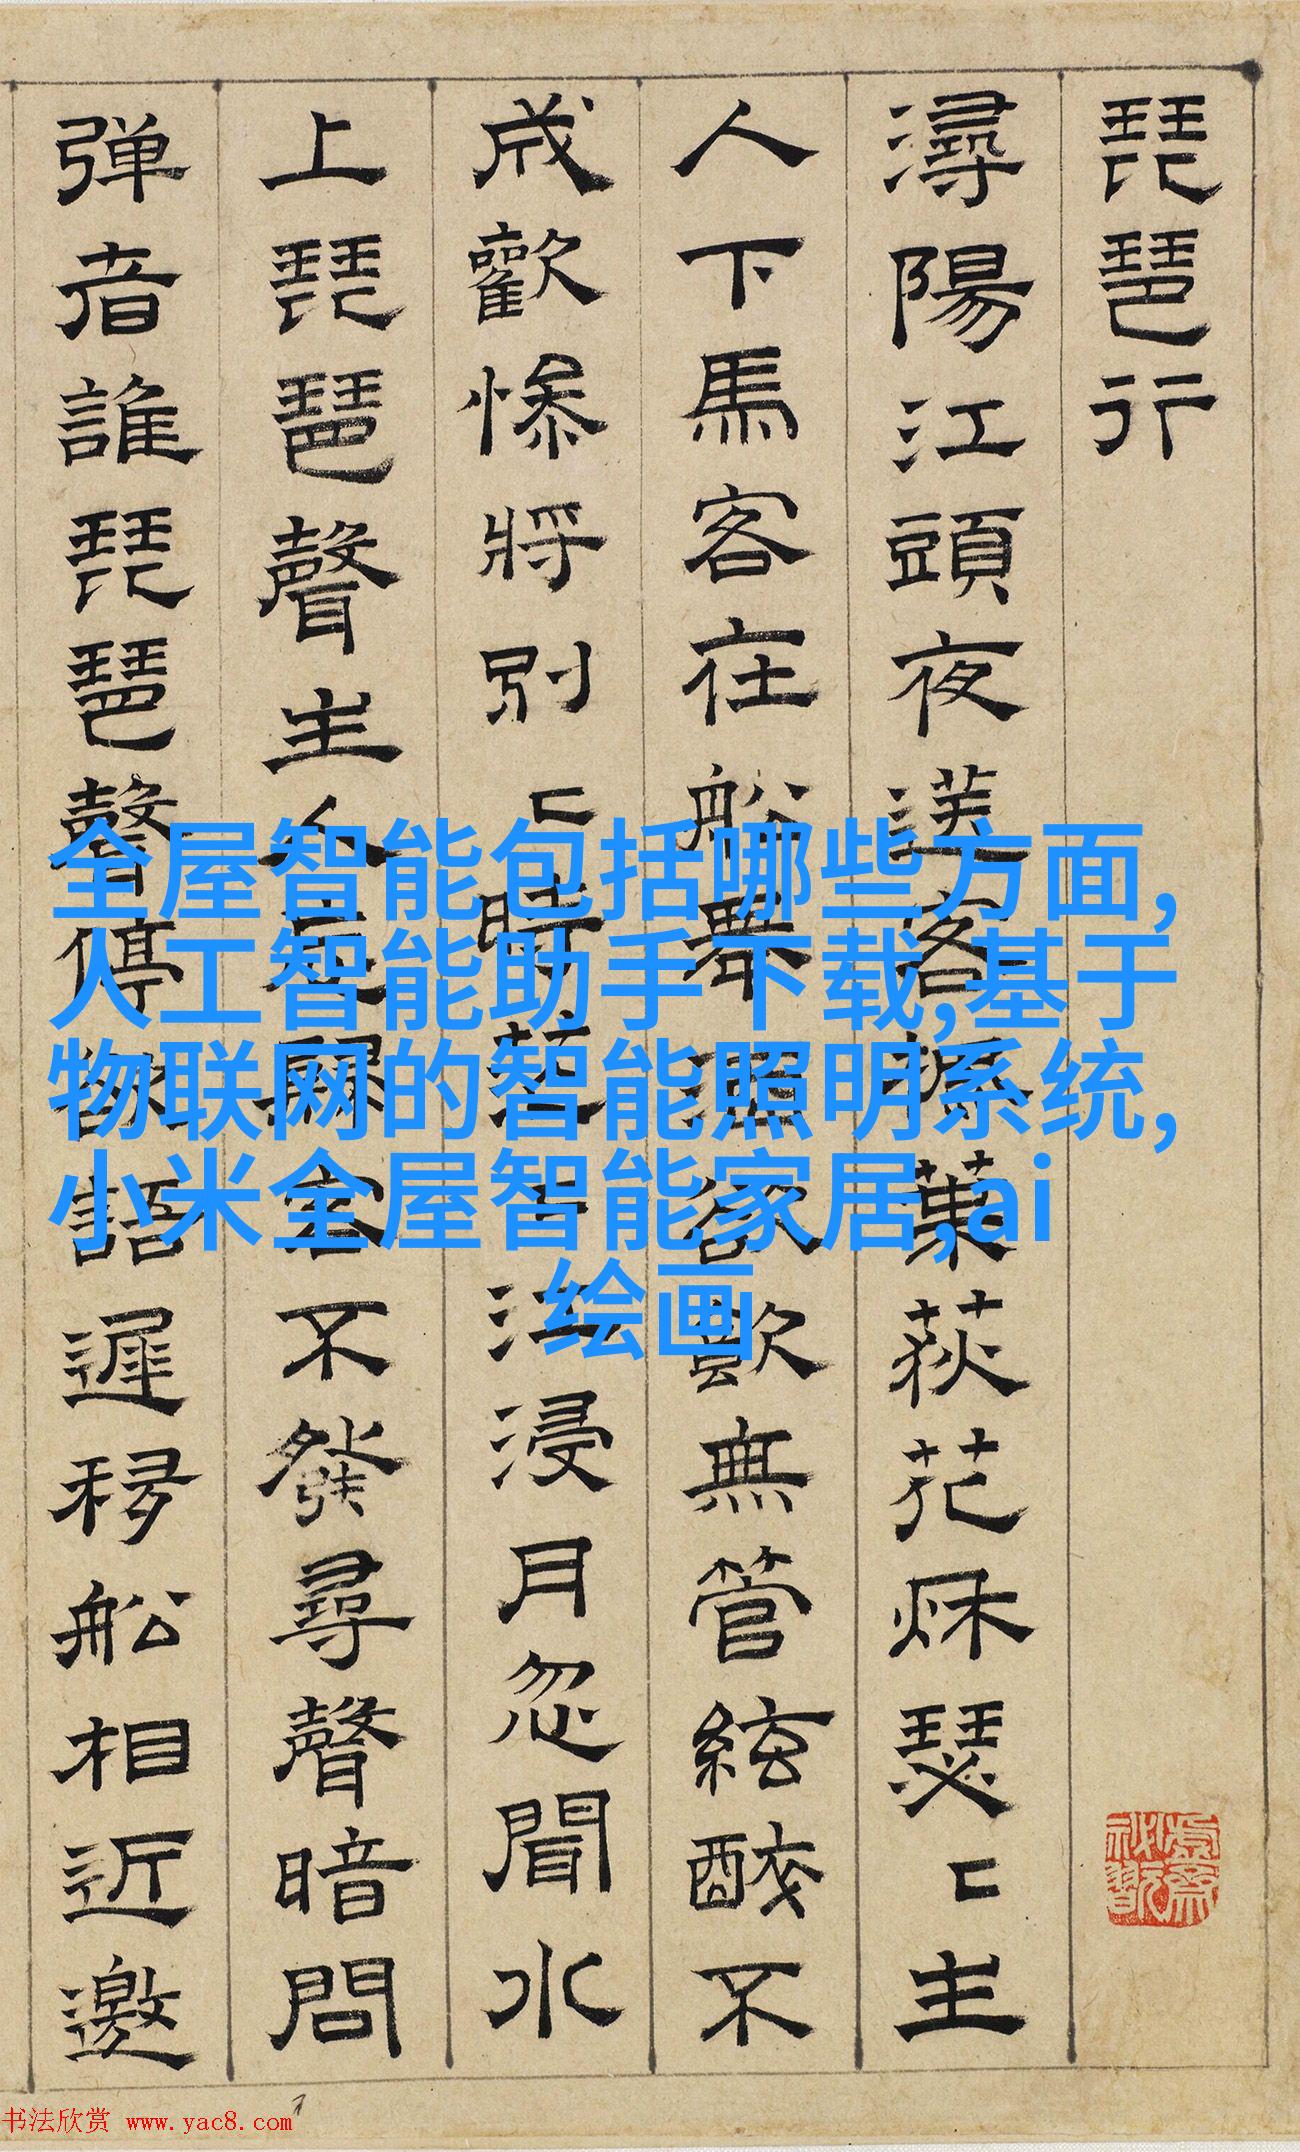 琵琶行
潯陽江頭夜送客楓葉荻花秋瑟〻主
人下馬客在船舉酒欲飲無管絃醉不
成歡慘將別〻時茫〻江浸月忽聞水
上琵琶聲主人忘歸客不發尋聲暗問
弹者誰琵琶聲停欲語遲移船相近邀
全屋智能包括哪些方面,
人工智能助手下载,基于
物联网的智能照明系统,
小米全屋智能家居,ai
绘画
虛齋秘翫
书法欣赏 www.yac8.com